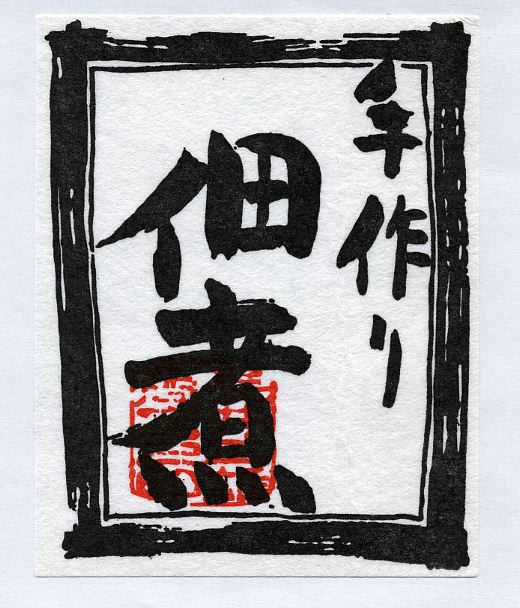 手作り
佃煮